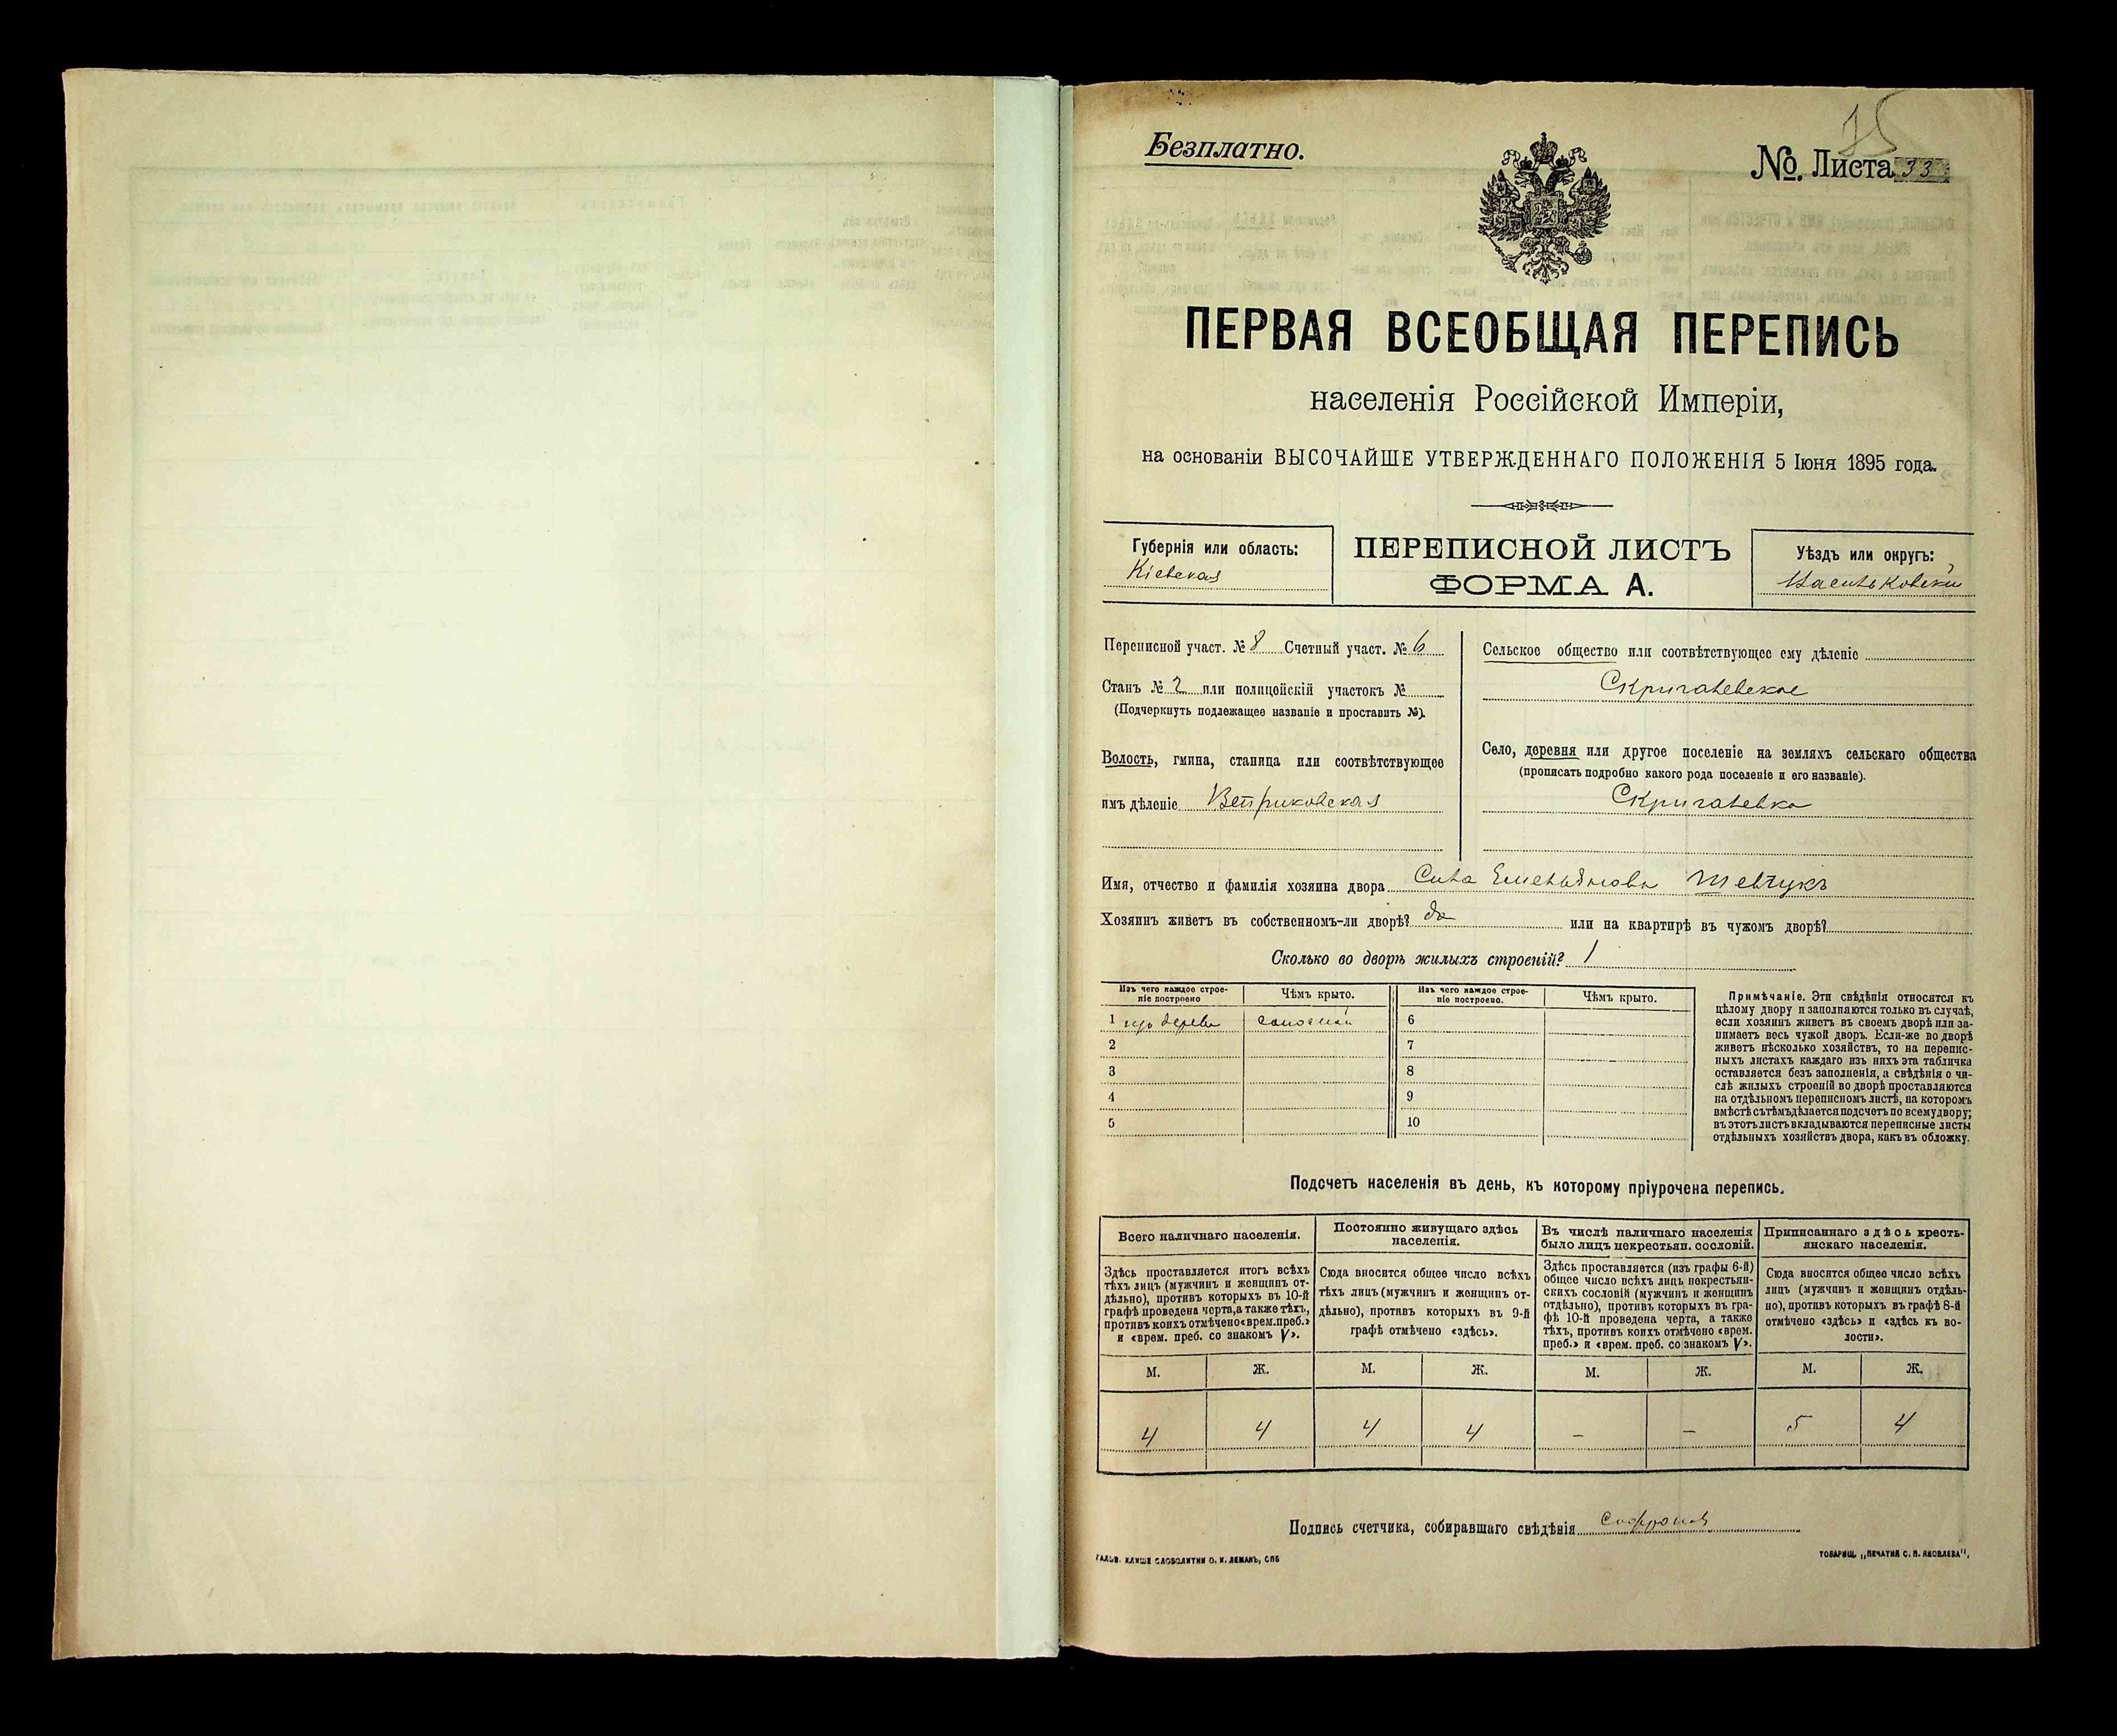 75
Безплатно.
№. Листа 33
ПЕРВАЯ ВСЕОБЩАЯ ПЕРЕПИСЬ
населенія Россійской Имперіи,
на основаніи ВЫСОЧАЙШЕ УТВЕРЖДЕННАГО ПОЛОЖЕНІЯ 5 Іюня 1895 года.
Губернія или область:
Кіевская
ПЕРЕПИСНОЙ ЛИСТЪ
ФОРМА А.
Уѣздъ или округъ:
Васильковскій
Переписной участ. № 8 Счетный участ. № 6
Станъ № 2 или полицейскій участокъ №
(Подчеркнуть подлежащее названіе и проставить №).
Волость, гмина, станица или соотвѣтствующее
имъ дѣленіе Веприковская
Сельское общество или соотвѣтствующее ему дѣленіе
Скригалевское
Село, деревня или другое поселеніе на земляхъ сельскаго общества
(прописать подробно какого рода поселеніе и его названіе).
Скригалевка
Имя, отчество и фамилія хозяина двора Сила Емельяновъ Шевчукъ
Хозяинъ живетъ въ собственномъ-ли дворѣ? да или на квартирѣ въ чужомъ дворѣ?
Сколько во дворѣ жилыхъ строеній? 1
Изъ чего каждое строе-
ніе построено
Чѣмъ крыто.
Изъ чего каждое строе-
ніе построено.
Чѣмъ крыто.
1 изъ дерева соломой 6
2 7
3 8
4 9
5 10
Примѣчаніе. Эти свѣдѣнія относятся къ
цѣлому двору и заполняются только въ случаѣ,
если хозяинъ живетъ въ своемъ дворѣ или за-
нимаетъ весь чужой дворъ. Если-же во дворѣ
живетъ нѣсколько хозяйствъ, то на перепис-
ныхъ листахъ каждаго изъ нихъ эта табличка
оставляется безъ заполненія, а свѣдѣнія о чи-
слѣ жилыхъ строеній во дворѣ проставляются
на отдѣльномъ переписномъ листѣ, на которомъ
вмѣстѣ съ тѣмъ дѣлается подсчетъ по всему двору;
въ этотъ листъ вкладываются переписные листы
отдѣльныхъ хозяйствъ двора, какъ въ обложку.
Подсчетъ населенія въ день, къ которому пріурочена перепись.
Всего наличнаго населенія.
Здѣсь проставляется итогъ всѣхъ
тѣхъ лицъ (мужчинъ и женщинъ от-
дѣльно), противъ которыхъ въ 10-й
графѣ проведена черта, а также тѣхъ,
противъ коихъ отмѣчено «врем. преб.»
и «врем. преб. со знакомъ V».
Постоянно живущаго здѣсь
населенія.
Сюда вносится общее число всѣхъ
тѣхъ лицъ (мужчинъ и женщинъ от-
дѣльно), противъ которыхъ въ 9-й
графѣ отмѣчено «здѣсь».
Въ числѣ наличнаго населенія
было лицъ некрестьян. сословій.
Здѣсь проставляется (изъ графы 6-й)
общее число всѣхъ лицъ некрестьян-
скихъ сословій (мужчинъ и женщинъ
отдѣльно), противъ которыхъ въ гра-
фѣ 10-й проведена черта, а также
тѣхъ, противъ коихъ отмѣчено «врем.
преб.» и «врем. преб. со знакомъ V».
Приписаннаго здѣсь кресть-
янскаго населенія.
Сюда вносится общее число всѣхъ
лицъ (мужчинъ и женщинъ отдѣль-
но), противъ которыхъ въ графѣ 8-й
отмѣчено «здѣсь» и «здѣсь къ во-
лости».
М. Ж. М. Ж. М. Ж. М. Ж.
4 4 4 4 – – 5 4
Подпись счетчика, собиравшаго свѣдѣнія
ГАЛЬВ. КЛИШЕ СЛОВОЛИТНИ О. И. ЛЕМАНЪ, СПБ
ТОВАРИЩ. „ПЕЧАТНЯ С. П. ЯКОВЛЕВА".